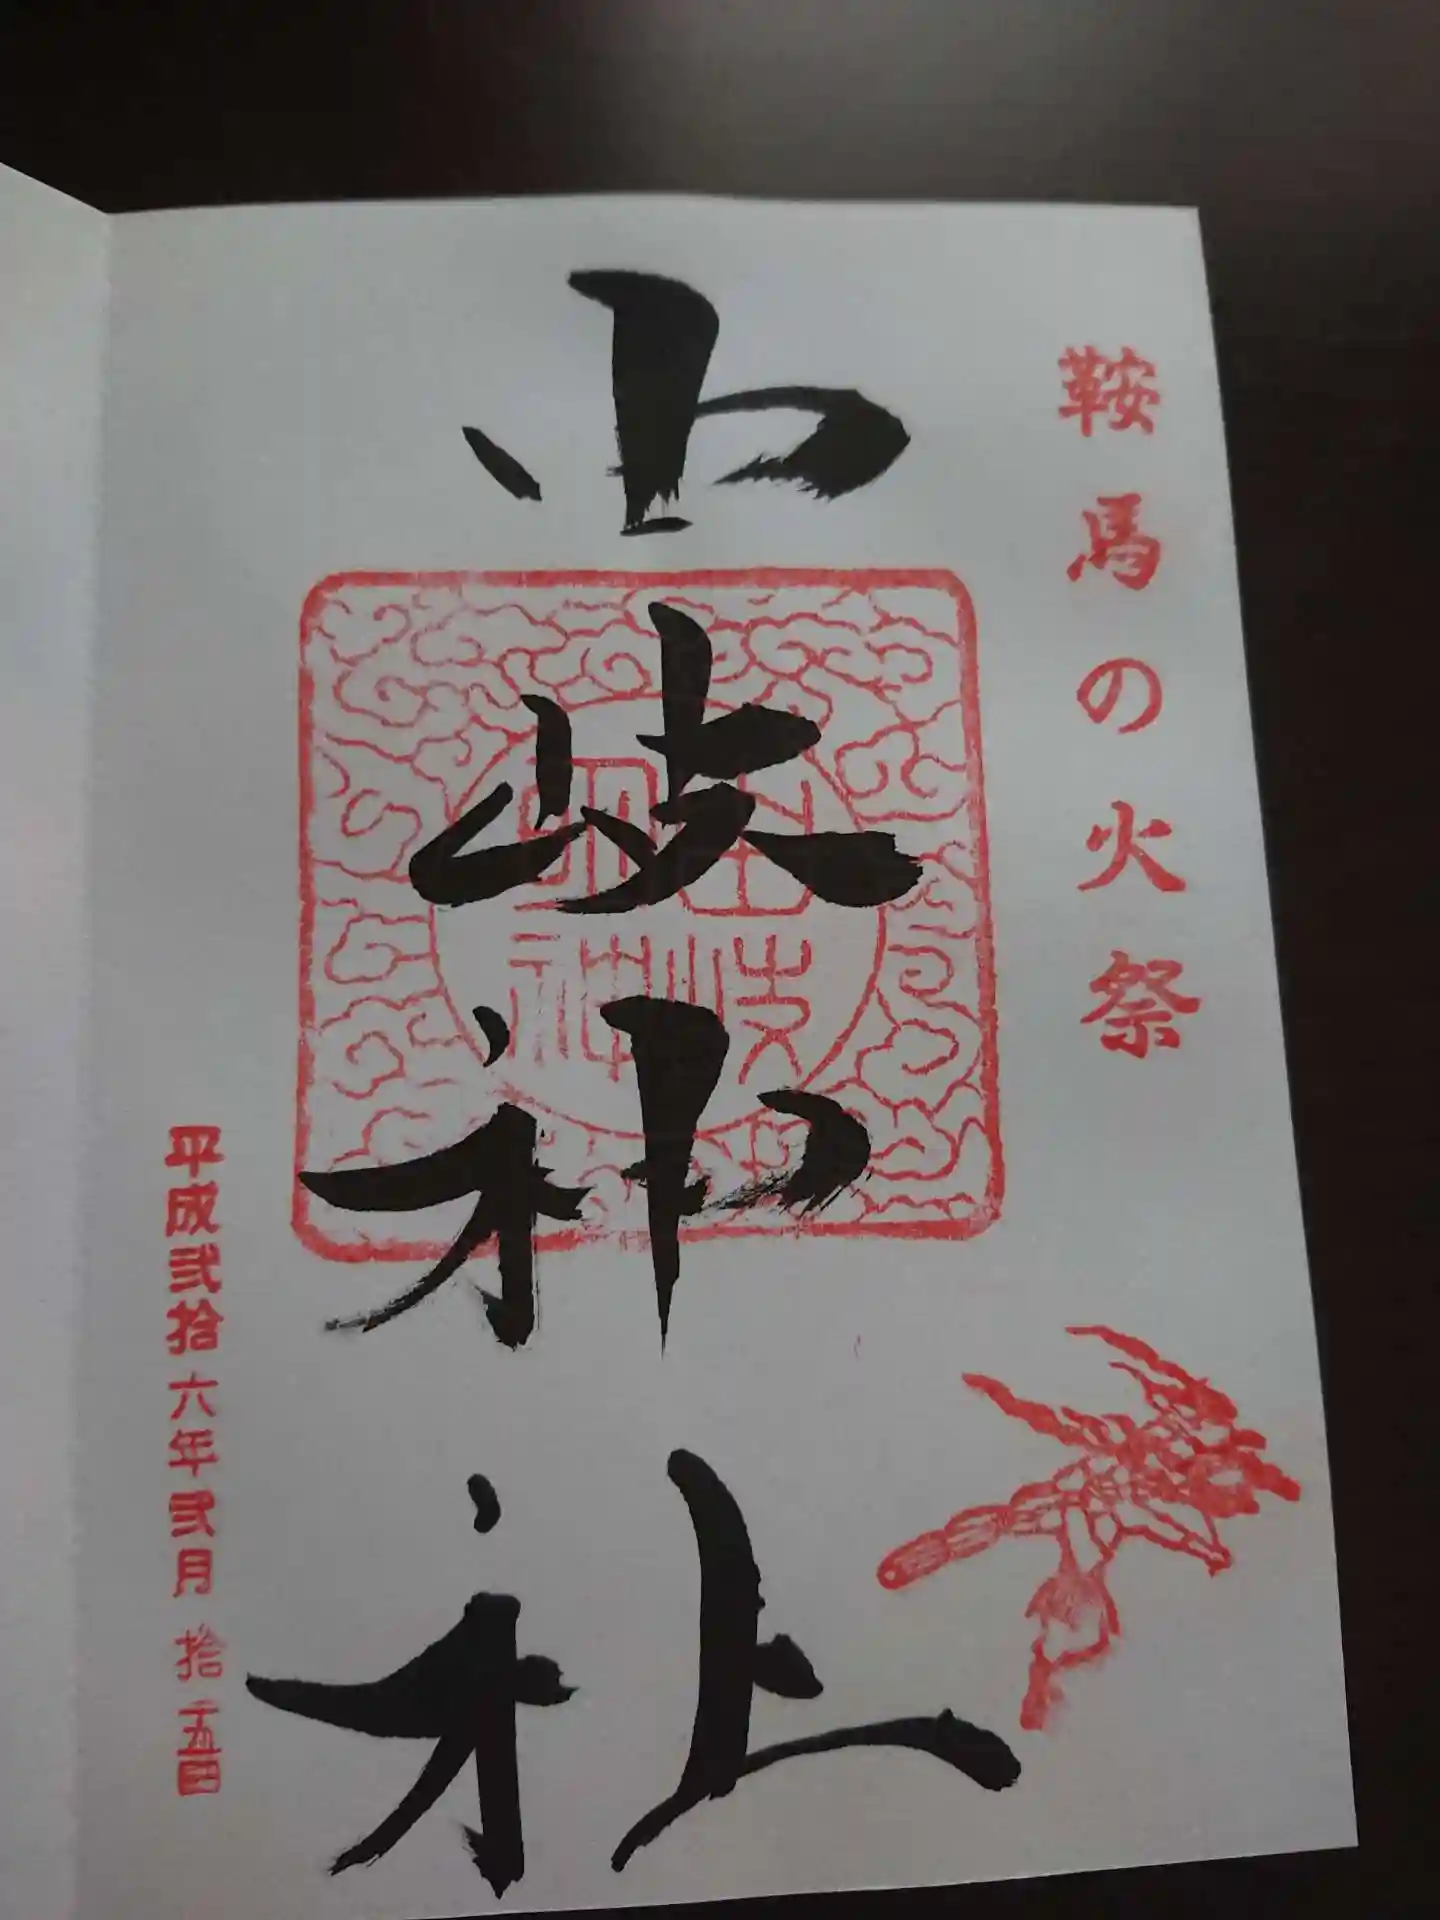 鞍馬の火祭
由岐神社
由岐
明神
平成弐拾六年弐月拾五日